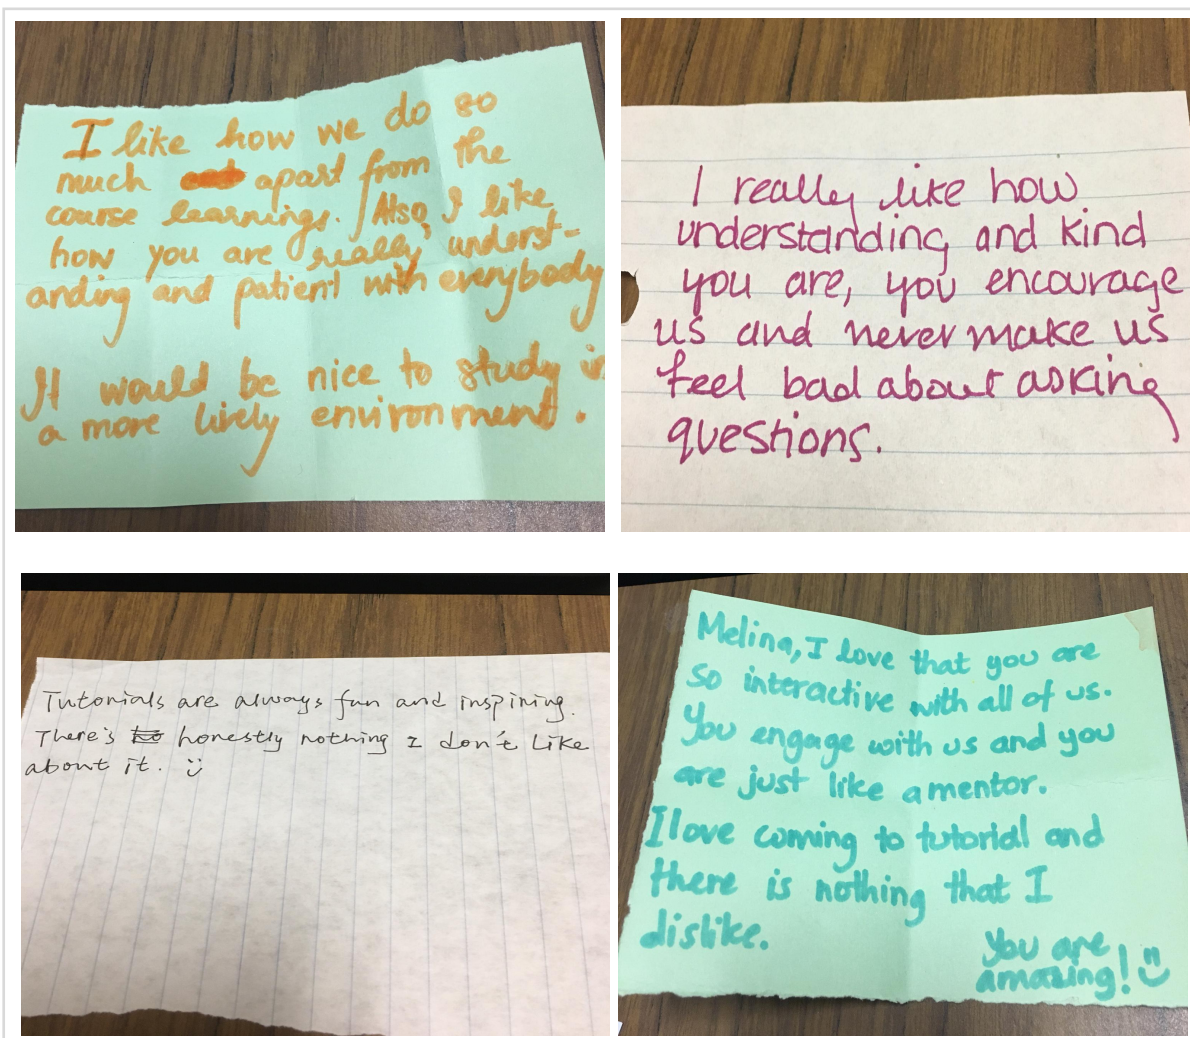 I like how we do so
much apart from the
course learnings. Also, I like
how you are really underst-
anding and patient with everybody
It would be nice to study in
a more lively environment.
I really like how
understanding and kind
you are, you encourage
us and never make us
feel bad about asking
questions.
Tutorials are always fun and inspiring.
There's honestly nothing I don't like
about it. :)
Melina, I love that you are
so interactive with all of us.
You engage with us and you
are just like a mentor.
I love coming to tutorial and
there is nothing that I
dislike.
You are
amazing! :)